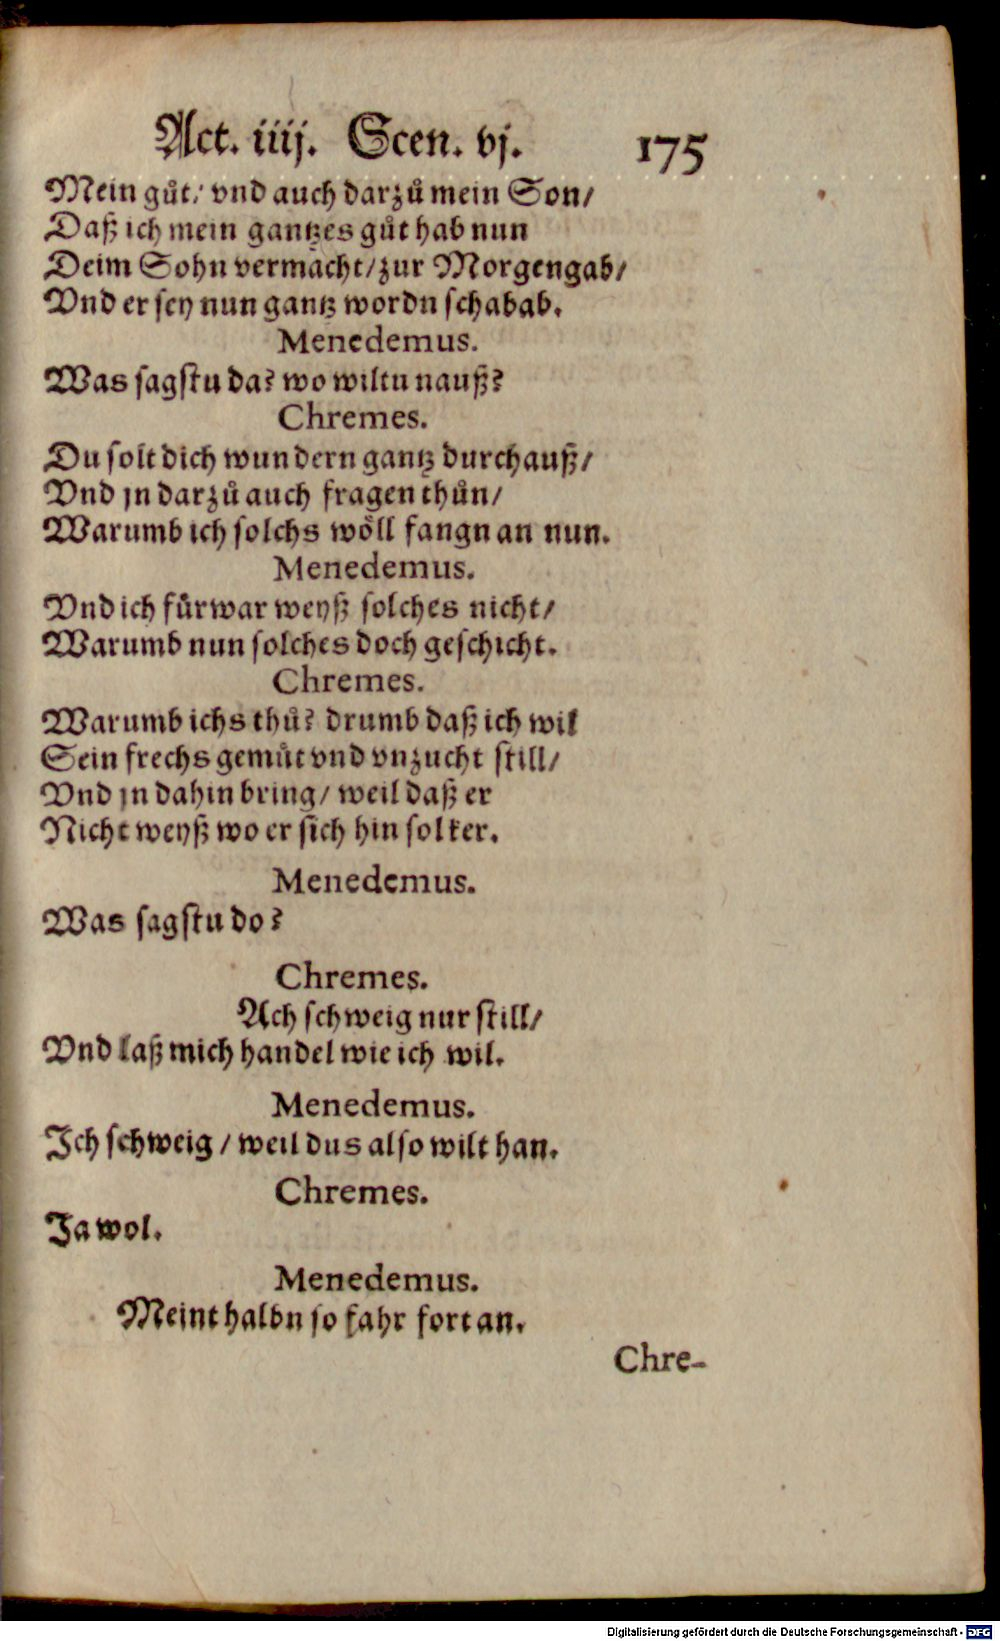 Act. iiij. Scen. vj. 175
Mein gůt/ vnd auch darzů mein Son/
Daß ich mein gantzes gůt hab nun
Deim Sohn vermacht/ zur Morgengab/
Vnd er sey nun gantz wordn schabab.
Menedemus.
Was sagstu da? wo wiltu nauß?
Chremes.
Du solt dich wundern gantz durchauß/
Vnd jn darzů auch fragen thůn/
Warumb ich solchs wöll fangn an nun.
Menedemus.
Vnd ich fürwar weyß solches nicht/
Warumb nun solches doch geschicht.
Chremes.
Warumb ichs thů? drumb daß ich wil
Sein frechs gemůt vnd vnzucht still/
Vnd jn dahin bring/ weil daß er
Nicht weyß wo er sich hin sol ker.
Menedemus.
Was sagstu do?
Chremes.
Ach schweig nur still/
Vnd laß mich handel wie ich wil.
Menedemus.
Ich schweig/ weil dus also wilt han.
Chremes.
Ja wol.
Menedemus.
Meint halbn so fahr fort an.
Chre-
Digitalisierung gefördert durch die Deutsche Forschungsgemeinschaft - DFG